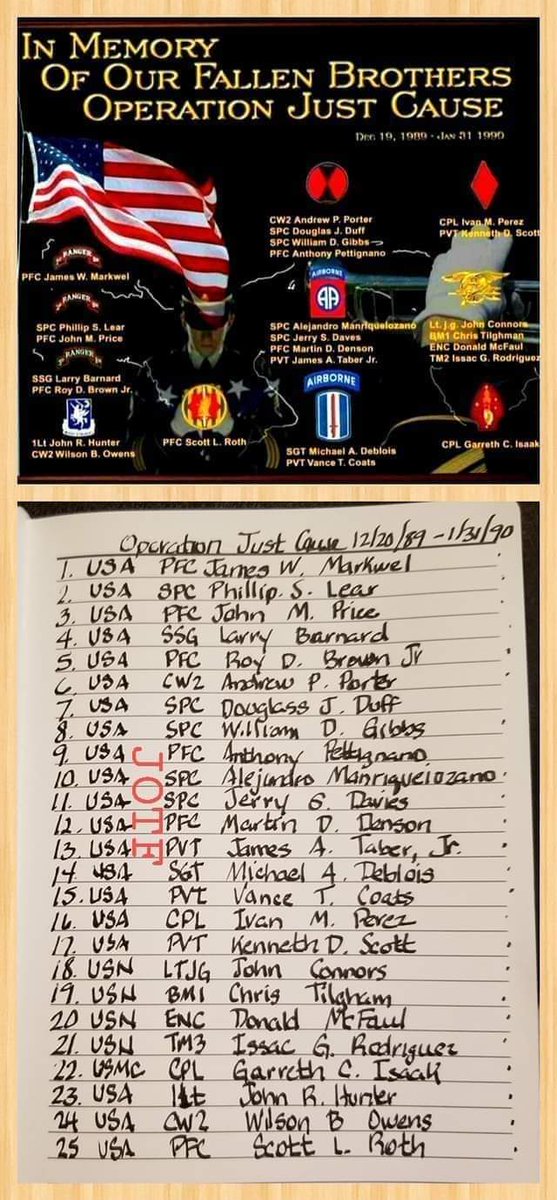 IN MEMORY
OF OUR FALLEN BROTHERS
OPERATION JUST CAUSE
DEC 19, 1989 - JAN 31 1990
RANGER
PFC James W. Markwel
RANGER
SPC Phillip S. Lear
PFC John M. Price
RANGER
SSG Larry Barnard
PFC Roy D. Brown Jr.
1Lt John R. Hunter
CW2 Wilson B. Owens
PFC Scott L. Roth
CW2 Andrew P. Porter
SPC Douglas J. Duff
SPC William D. Gibbs
PFC Anthony Pettignano
AIRBORNE
AA
SPC Alejandro Manriquelozano
SPC Jerry S. Daves
PFC Martin D. Denson
PVT James A. Taber Jr.
AIRBORNE
SGT Michael A. Deblois
PVT Vance T. Coats
CPL Ivan M. Perez
PVT Kenneth D. Scott
Lt. j.g. John Connors
BM1 Chris Tilghman
ENC Donald McFaul
TM2 Issac G. Rodriguez
CPL Garreth C. Isaak
Operation Just Cause 12/20/89 - 1/31/90
1. USA PFC James W. Markwel
2. USA SPC Phillip S. Lear
3. USA PFC John M. Price
4. USA SSG Larry Barnard
5. USA PFC Roy D. Brown Jr
6. USA CW2 Andrew P. Porter
7. USA SPC Douglass J. Duff
8. USA SPC William D. Gibbs
9. USA PFC Anthony Pettignano
10. USA SPC Alejandro Manriquelozano
11. USA SPC Jerry S. Davies
12. USA PFC Martin D. Denson
13. USA PVT James A. Taber, Jr.
14 USA SGT Michael A. Deblois
15. USA PVT Vance T. Coats
16. USA CPL Ivan M. Perez
17. USA PVT Kenneth D. Scott
18. USN LTJG John Connors
19. USN BM1 Chris Tilgham
20 USN ENC Donald McFaul
21. USN TM3 Issac G. Rodriguez
22. USMC CPL Garreth C. Isaak
23. USA 1Lt John R. Hunter
24 USA CW2 Wilson B Owens
25 USA PFC Scott L. Roth
JOTF